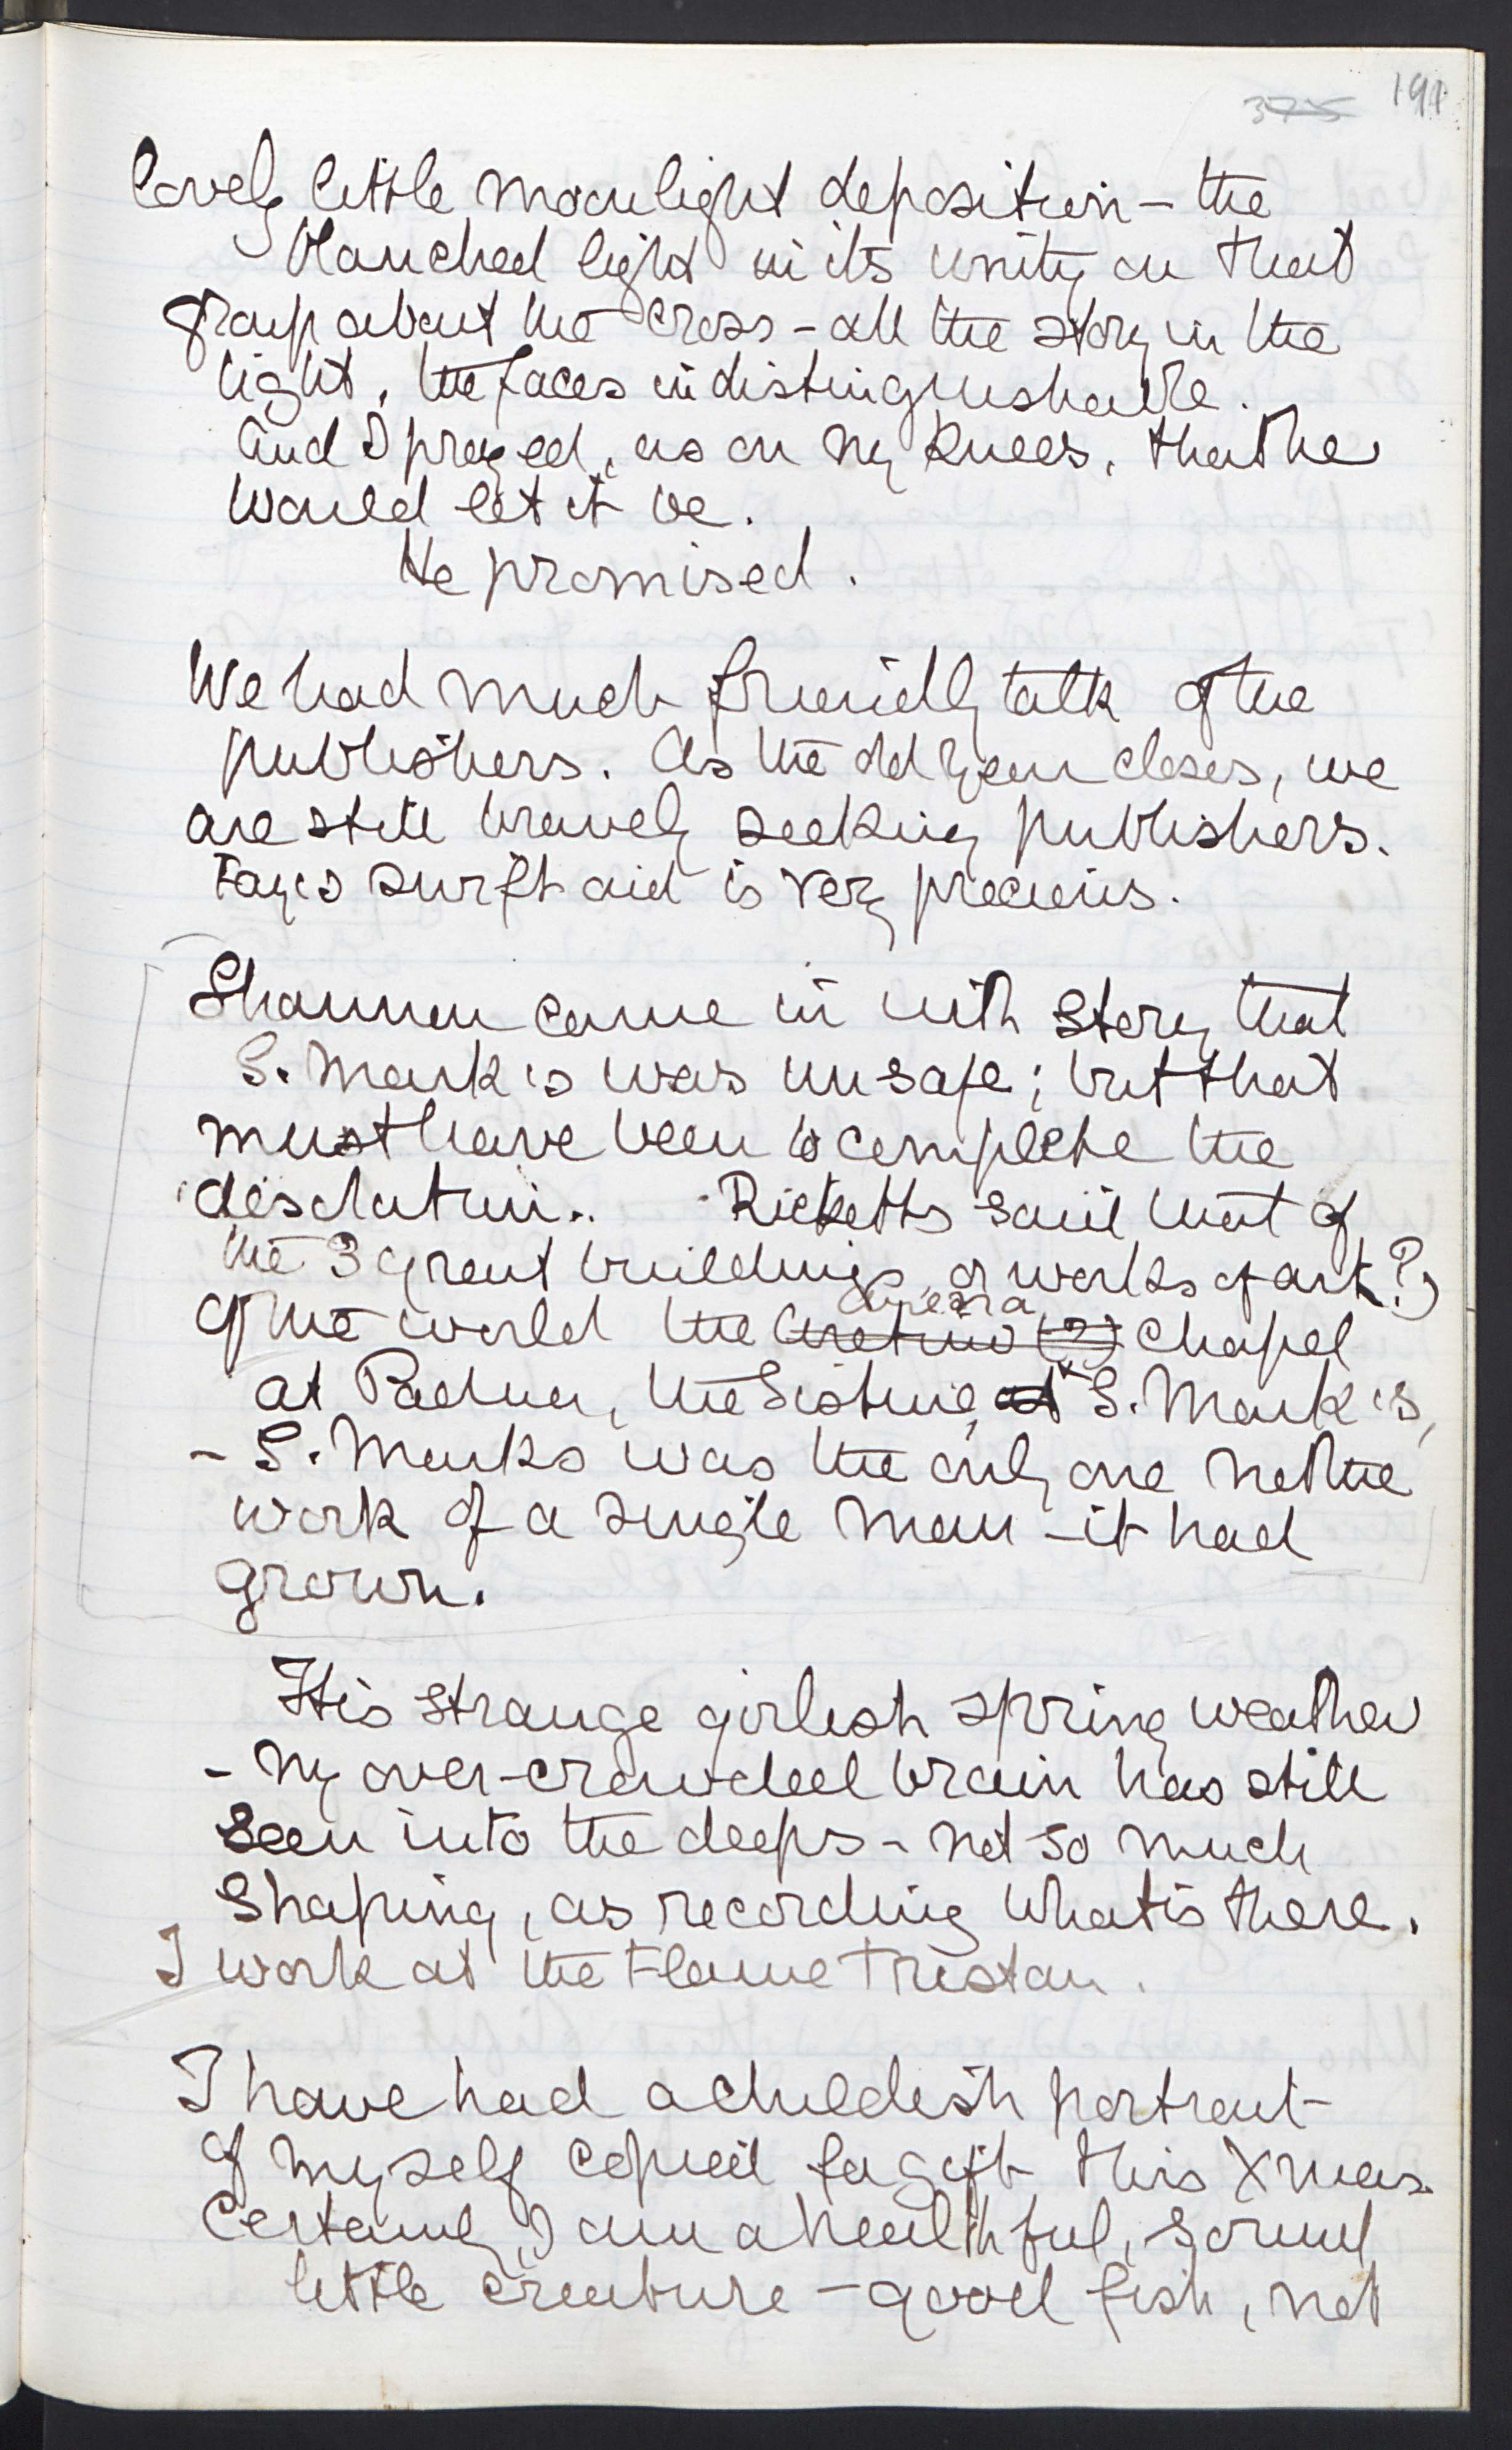 375 191
lovely little moonlight deposition – the
blanched light in its unity on that
group about the cross – all the story in the
light, the faces indistinguishable.
And I prayed, as on my knees, that he
would let it be.
He promised.
We had much friendly talk of the
publishers. As the old year closes, we
are still bravely seeking publishers.
Fay's swift aid is very precious.
Shannon came in with story that
S. Mark's was unsafe; but that
must have been to complete the
desolation. Ricketts said that of
the 3 great buildings, or works of art?)
Arena
of the world the Aretino (?) chapel
at Padua, the Sistine, at S. Mark's,
– S. Marks was the only one not the
work of a single man – it had
grown.
It is strange girlish spring weather
– My over-crowded brain has still
seen into the deeps – not so much
shaping, as recording what is there.
I work at the Flame Tristan.
I have had a childish portrait
of myself copied for gift this Xmas.
Certainly I am a healthful, sound
little creature – good fish, not